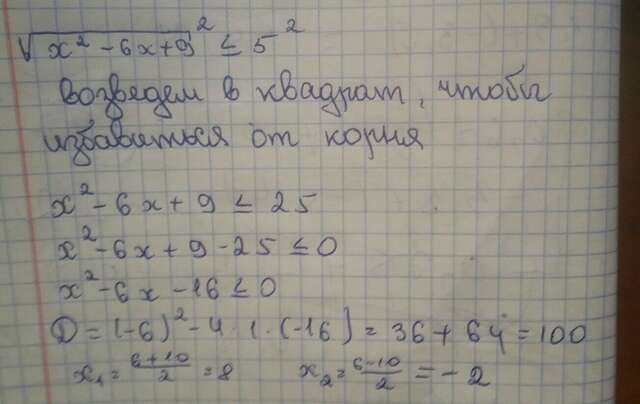 √(x² - 6x + 9)² ≤ 5²
возведем в квадрат, чтобы
избавиться от корня
x² - 6x + 9 ≤ 25
x² - 6x + 9 - 25 ≤ 0
x² - 6x - 16 ≤ 0
D = (-6)² - 4 · 1 · (-16) = 36 + 64 = 100
x₁ = (6+10)/2 = 8 x₂ = (6-10)/2 = -2